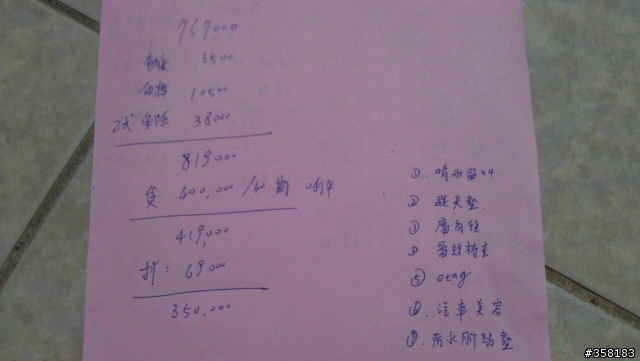 767000
3500
領牌 10500
乙式 保險 38000
819000
貸 400,000 /40 期 0利率
419,000
折: 69000
350,000
①. 晴雨窗x4
② 避光墊.
③ 廣角鏡
④
⑤ etag
⑥. 汽車美容
⑦. 防水腳踏墊.
#358183